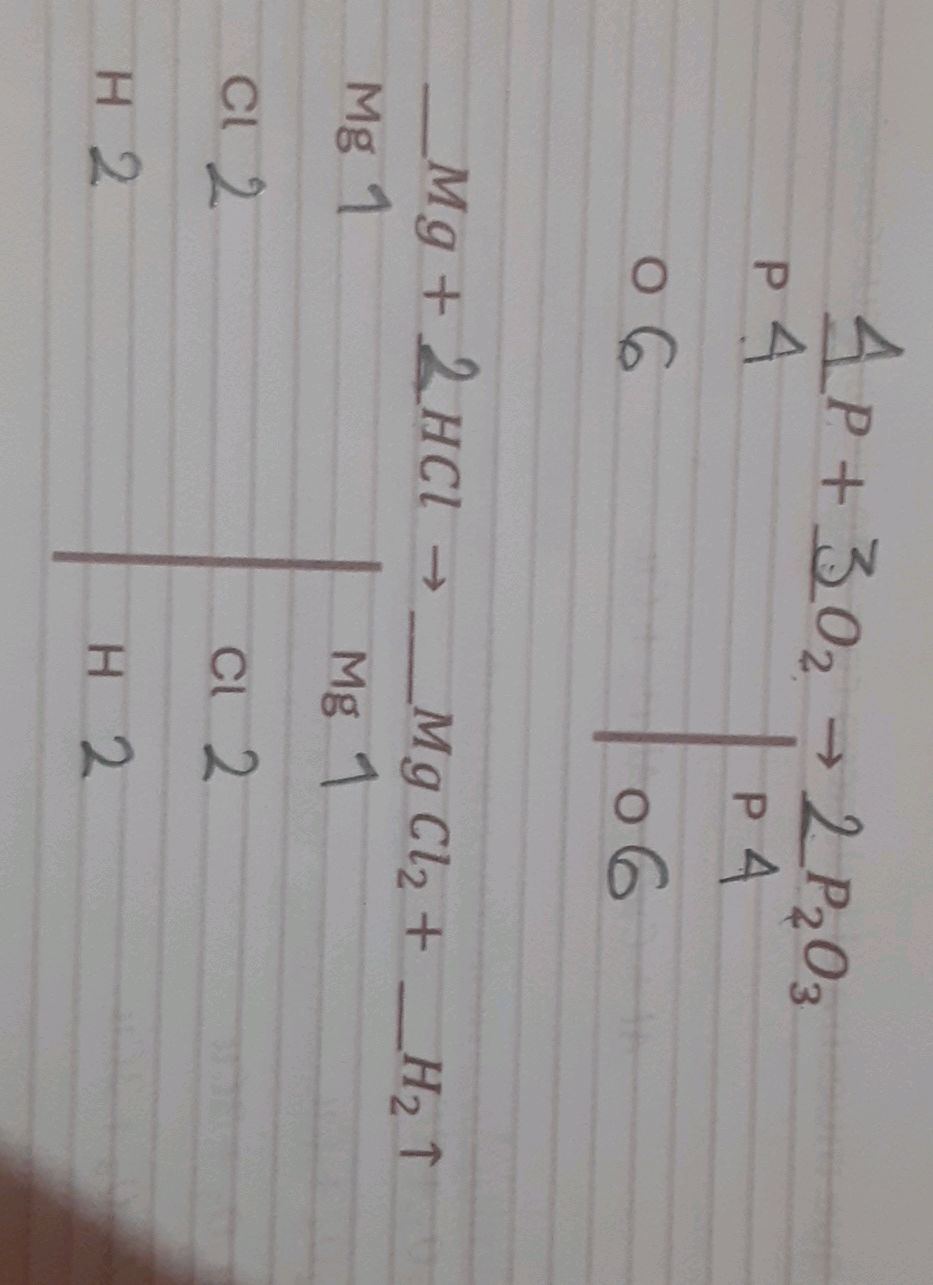 4P + 3O₂ → 2P₂O₃
P 4 P 4
O 6 O 6
__Mg + 2HCl → __MgCl₂ + __H₂↑
Mg 1 Mg 1
Cl 2 Cl 2
H 2 H 2